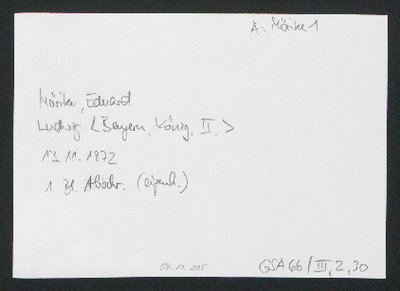 A: Mörike 1
Mörike, Eduard
Ludwig <Bayern, König, II.>
13.11.1872
1 Bl. Abschr. (eigenh.)
GSA 66/III, 2, 30